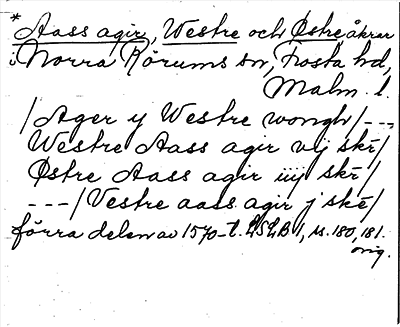 * Aass agir, Westre och Østre åkrar
i Norra Rörums sn, Frosta hd,
Malm. l.
/Ager y Westre wongh/---
Westre Aass agir vij skr/
Østre Aass agir iiij skr/
---/Vestre aass agir j skr/
förra delen av 1570-t. LSLB 1, s. 180, 181.
orig.